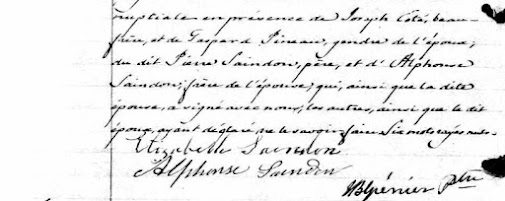 nuptiale en présence de Joseph Coté, beau-
frère, et de Gaspard Pineau, gendre de l'époux;
du dit Pierre Saindon, père, et d'Alphonse
Saindon, frère de l'épouse qui, ainsi que la dite
épouse, a signé avec nous; les autres, ainsi que le dit
époux, ayant déclaré ne le savoir faire Six mots rayés nuls.
Elizabeth Saindon
Alphonse Saindon
Ptre